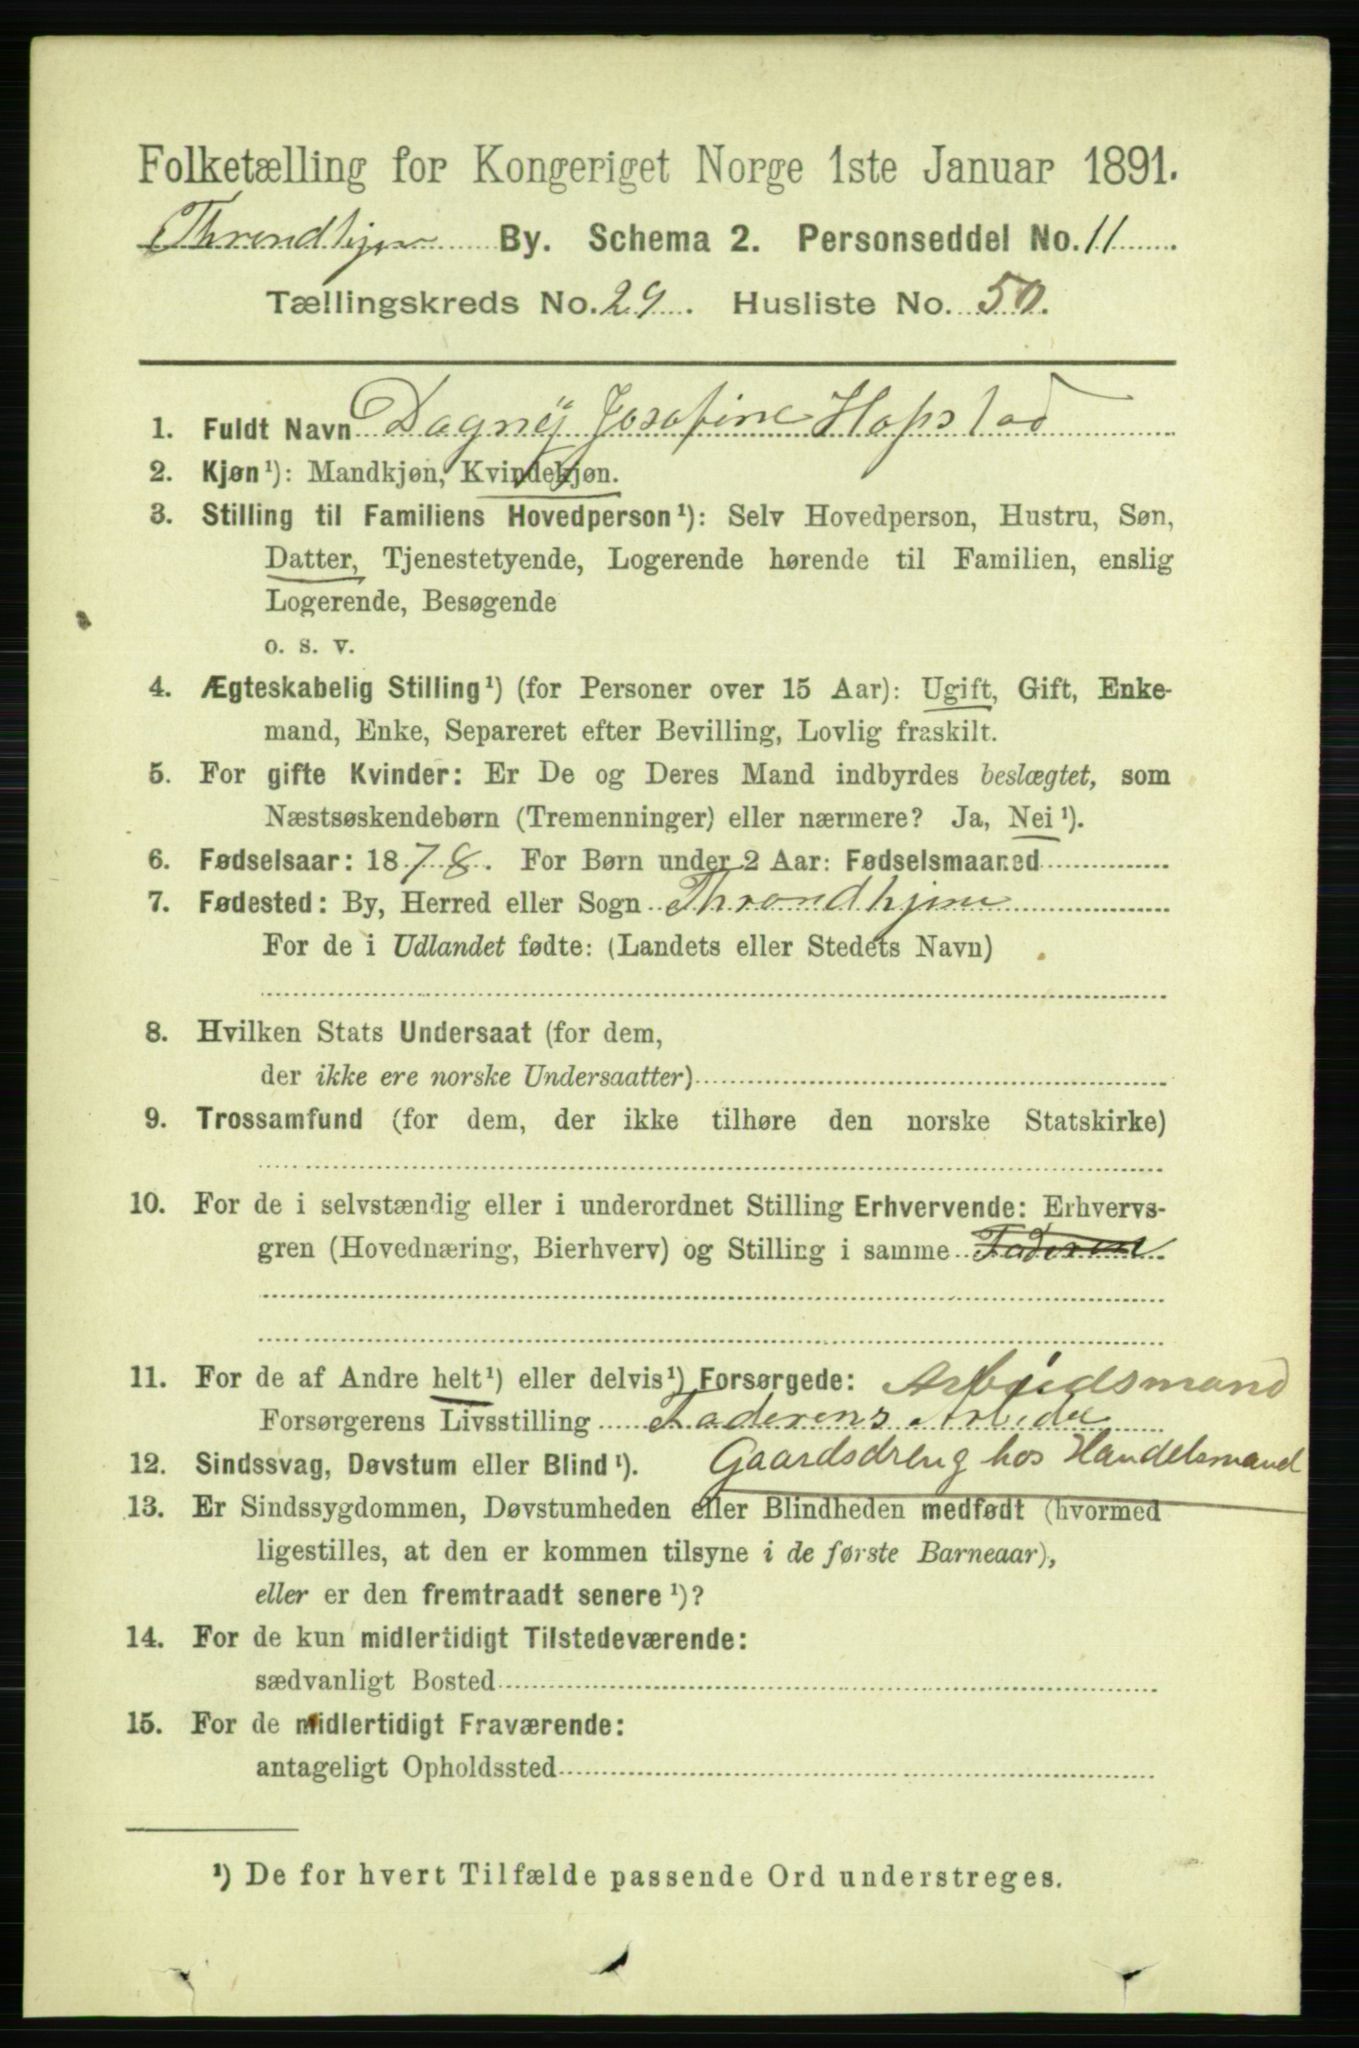 Folketælling for Kongeriget Norge 1ste Januar 1891.
Throndhjem By. Schema 2. Personseddel No. 11
Tællingskreds No. 29. Husliste No. 50.
1. Fuldt Navn Dagny Josefine Hopstad
2. Kjøn¹): Mandkjøn, Kvindekjøn.
3. Stilling til Familiens Hovedperson¹): Selv Hovedperson, Hustru, Søn,
Datter, Tjenestetyende, Logerende hørende til Familien, enslig
Logerende, Besøgende
o. s. v.
4. Ægteskabelig Stilling¹) (for Personer over 15 Aar): Ugift, Gift, Enke-
mand, Enke, Separeret efter Bevilling, Lovlig fraskilt.
5. For gifte Kvinder: Er De og Deres Mand indbyrdes beslægtet, som
Næstsøskendebørn (Tremenninger) eller nærmere? Ja, Nei¹).
6. Fødselsaar: 1878. For Børn under 2 Aar: Fødselsmaaned
7. Fødested: By, Herred eller Sogn Throndhjem
For de i Udlandet fødte: (Landets eller Stedets Navn)
8. Hvilken Stats Undersaat (for dem,
der ikke ere norske Undersaatter)
9. Trossamfund (for dem, der ikke tilhøre den norske Statskirke)
10. For de i selvstændig eller i underordnet Stilling Erhvervende: Erhvervs-
gren (Hovednæring, Bierhverv) og Stilling i samme Faderen
11. For de af Andre helt¹) eller delvis¹) Forsørgede: Arbeidsmand
Forsørgerens Livsstilling Faderens
12. Sindssvag, Døvstum eller Blind¹). Gaardsdreng hos Handelsmand
13. Er Sindssygdommen, Døvstumheden eller Blindheden medfødt (hvormed
ligestilles, at den er kommen tilsyne i de første Barneaar),
eller er den fremtraadt senere¹)?
14. For de kun midlertidigt Tilstedeværende:
sædvanligt Bosted
15. For de midlertidigt Fraværende:
antageligt Opholdssted
¹) De for hvert Tilfælde passende Ord understreges.